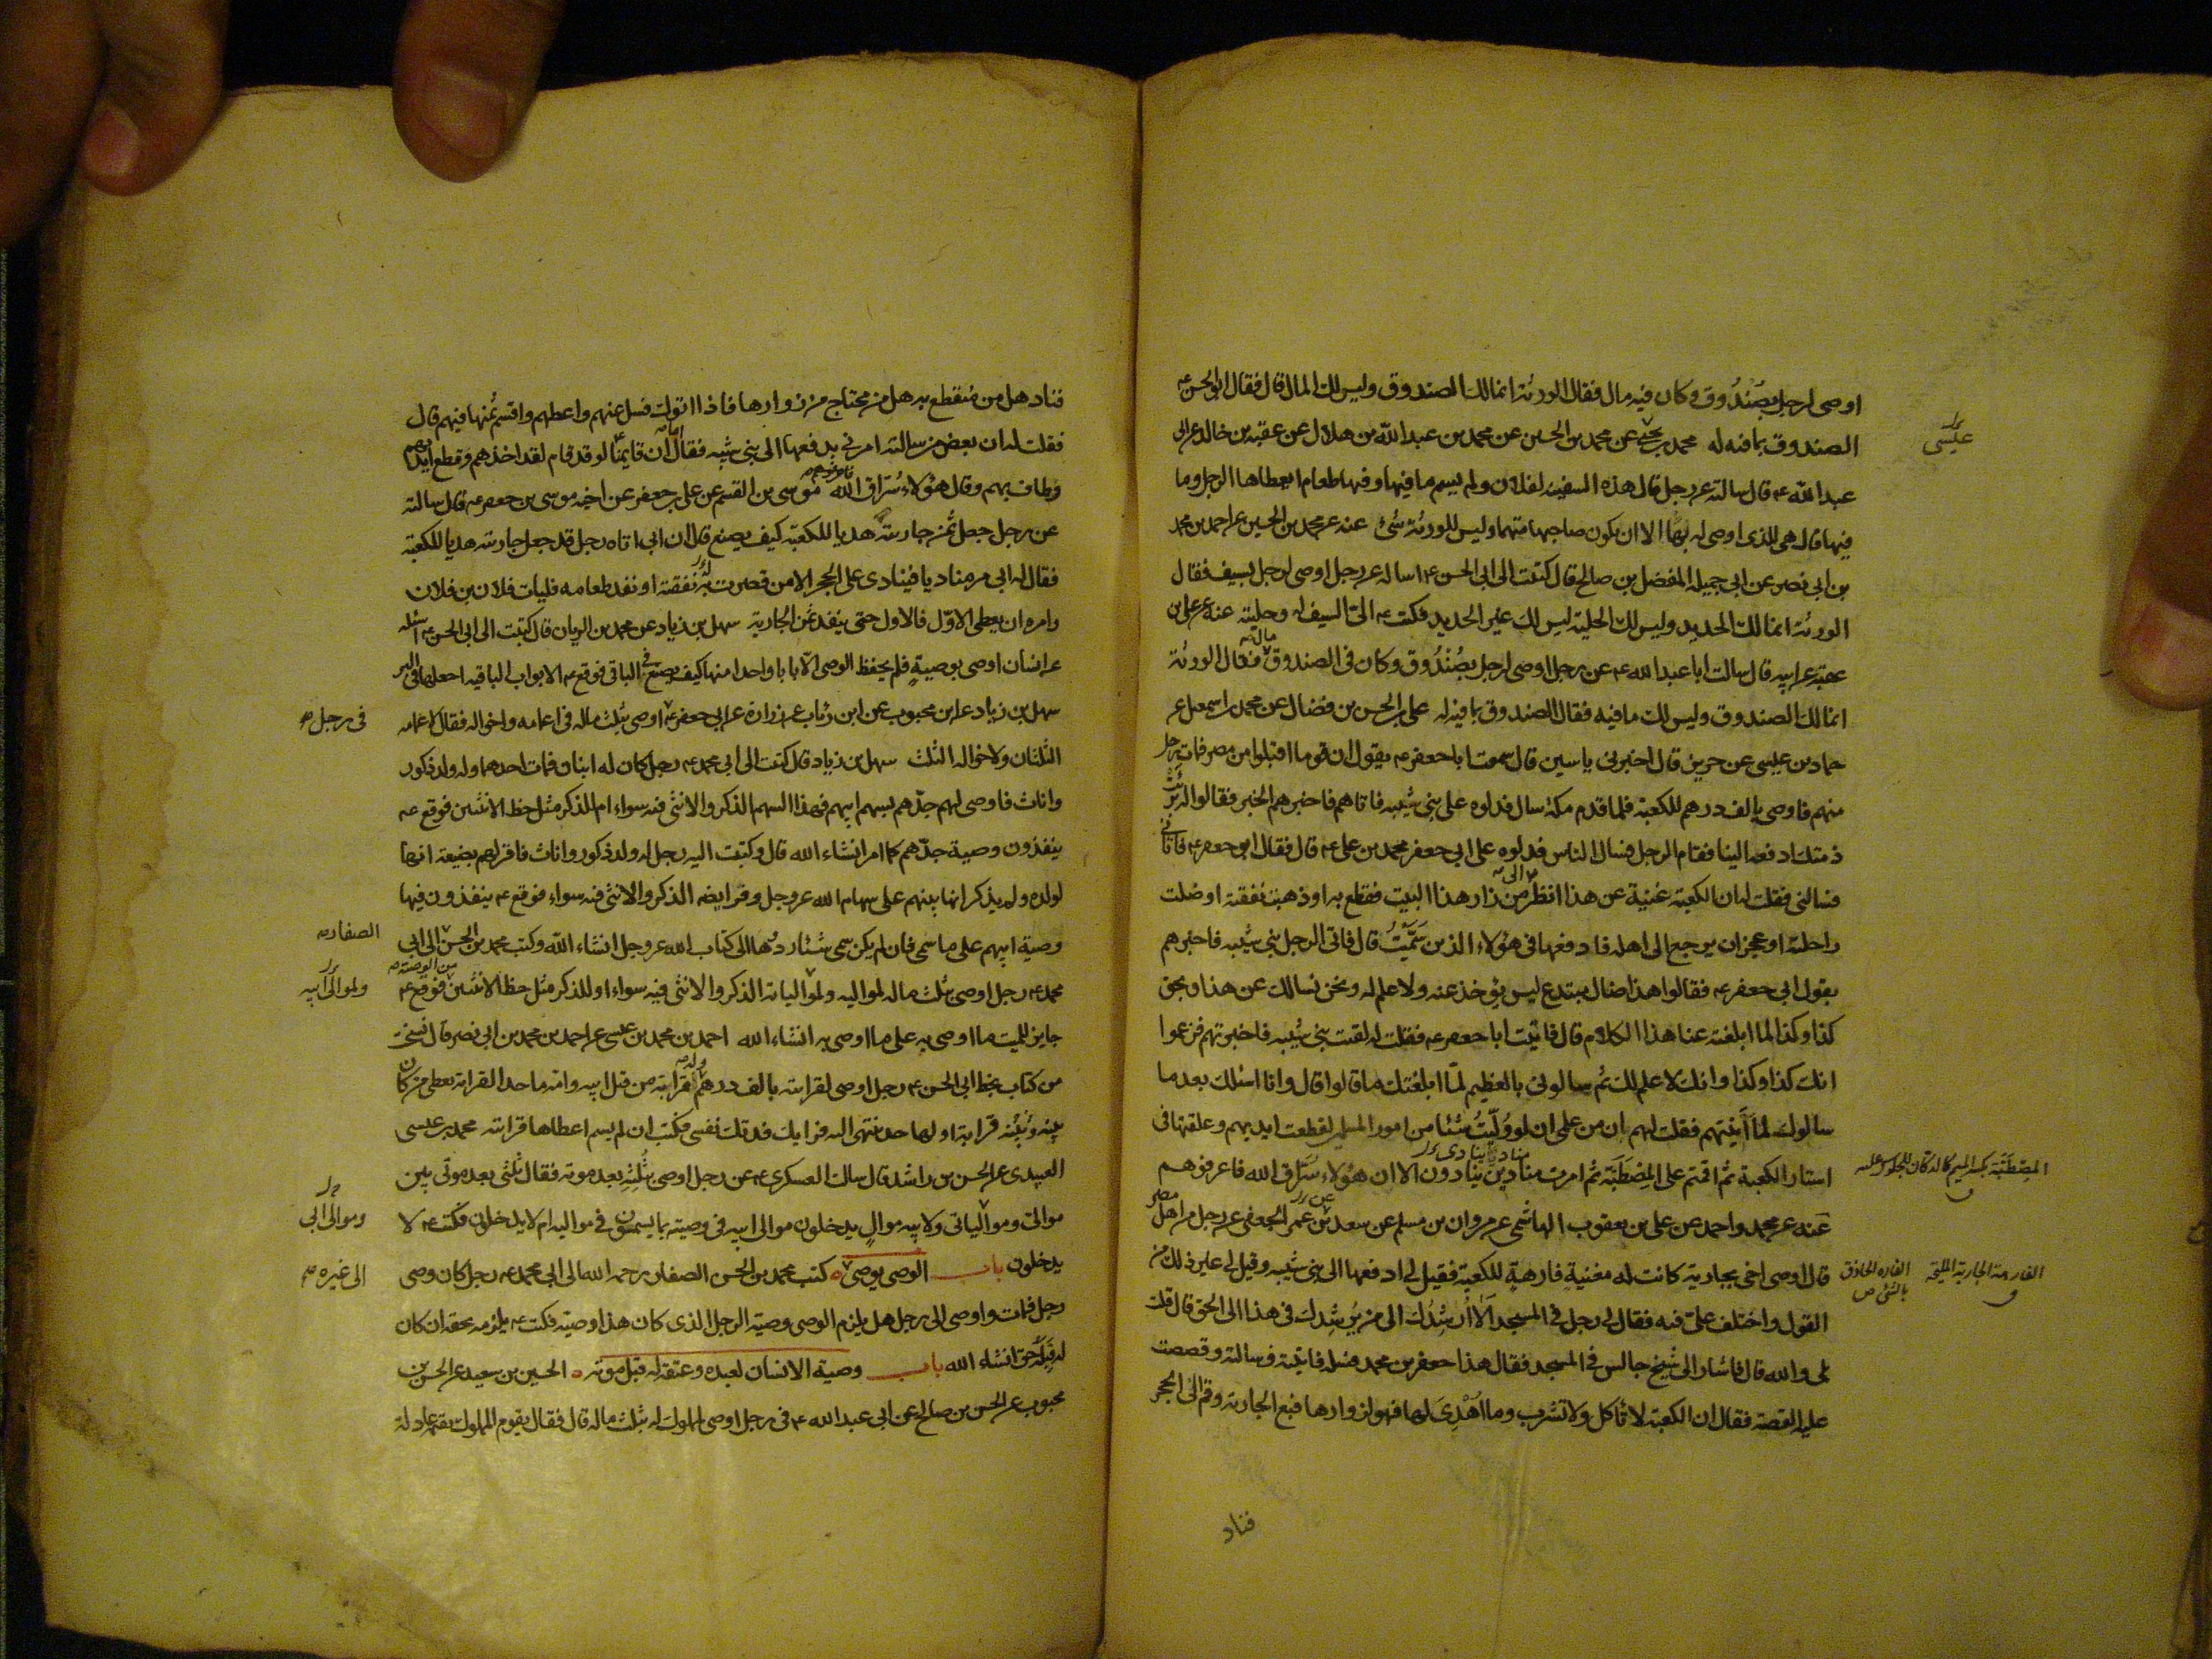 اوصى لرجل بصُنْدُوق وكان فيه مال فقال الورثة انما لك الصندوق وليس لك المال قال فقال ابو الحسن ع
الصندوق بما فيه له محمد بن يحيى عن محمد بن الحسين عن محمد بن عبد الله بن هلال عن عقبة بن خالد عن ابى
عيسى
عبد الله ع قال سالته عن رجل قال هذه السفينة لفلان ولم يسم ما فيها وفيها طعام ايعطاها الرجل وما
فيها قال هى للذى اوصى له بها الا ان يكون صاحبها متهما وليس للورثة شئ عنه عن محمد بن الحسين عن احمد بن محمد
بن ابى نصر عن ابى جميلة المفضل بن صالح قال كتبت الى ابى الحسن ع اساله عن رجل اوصى لرجل بسيف فقال
الورثة انما لك الحديد وليس لك الحلية ليس لك غير الحديد فكتب ع الىّ السيف له وحليته عنه عن على بن
عقبة عن ابيه قال سالت ابا عبد الله ع عن رجل اوصى لرجل بصُنْدُوق وكان فى الصندوق مال فقال الورثة
انما لك الصندوق وليس لك ما فيه فقال الصندوق بما فيه له على بن الحسن بن فضال عن محمد بن اسمعيل عن
حماد بن عيسى عن حريز قال اخبرنى ياسين قال سمعت ابا جعفر ع يقول ان قوما اقبلوا من مصر فمات رجل
منهم فاوصى بالف درهم للكعبة فلما قدم مكة سال فدلوه على بنى شيبه فاتاهم فاخبرهم الخبر فقالوا قد برئت
ذمتك ادفعه الينا فقام الرجل فسال الناس فدلوه على ابى جعفر محمد بن على ع قال فقال ابو جعفر ع فاتانى
فسالنى فقلت له ان الكعبة غنية عن هذا انظر الى من زار هذا البيت فقطع به او ذهبت نفقته او ضلت
راحلته او عجز ان يرجع الى اهله فادفعها فى هؤلاء الذين سَمَّيْتُ قال فاتى الرجل بنى شيبه فاخبرهم
بقول ابى جعفر ع فقالوا هذا ضال مبتدع ليس يؤخذ عنه ولا علم له ونحن نسالك عن هذا وبحق
كذا وكذا لما ابلغته عنا هذا الكلام قال فاتيت ابا جعفر ع فقلت له لقيت بنى شيبه فاخبرتهم فزعموا
انك كذا وكذا وانك لا علم لك ثم سالونى بالعظيم لمّا ابلغتك ما قالوا قال وانا اسئلك بعد ما
سالوك لما أتيتهم فقلت لهم ان من علمى ان لو وُلّيتُ شيئا من امور المسلمين لقطعت ايديهم وعلقتها فى
استار الكعبة ثم اقمتهم على المِصْطَبَّة ثم امرت منادين ينادون الا ان هؤلاء سُرّاق الله فاعرفوهم
المِصْطَبَّة بكسر الميم كالدكان للجلوس عليه
عَنه عن محمد واحمد عن على بن يعقوب الهاشمى عن مروان بن مسلم عن سعيد بن عمر الجعفى عن رجل من اهل مصر
قال اوصى اخى بجارية كانت له مغنية فارهة للكعبة فقيل لى ادفعها الى بنى شيبه وقيل لى غير ذلك من
الفاره الحاذق بالشئ ص
الفارهة الجارية المليحة
القول واختلف علىّ فيه فقال لى رجل فى المسجد اَلا اُرشِدُك الى من يُرشِدك فى هذا الى الحق قال قلت
بلى والله قال فاشار الى شيخ جالس فى المسجد فقال هذا جعفر بن محمد فسله فاتيته فسالته وقصصت
عليه القصة فقال ان الكعبة لا تاكل ولا تشرب وما اُهْدِىَ لها فهو لزوارها فبع الجارية وقم الى الحجر
فناد
فناد هل من مُنقطع به هل من محتاج من زوارها فاذا اتوك فسل عنهم واعطهم واقسم ثمنها فيهم قال
فقلت له ان بعض من سالته امرنى بدفعها الى بنى شيبه فقال اما ان قايمنا لو قد قام لقد اخذهم وقطع ايديهم
وطاف بهم وقال هؤلاء سُرّاق الله موسى بن القسم عن على بن جعفر عن اخيه موسى بن جعفر ع قال سالته
عن رجل جعل ثمن جاريته هديا للكعبة كيف يصنع قال ان ابى اتاه رجل قد جعل جاريته هديا للكعبة
فقال له ابى مر مناديا فينادى على الحجر الا من قصرت به نفقته او نفد طعامه فليات فلان بن فلان
وامره ان يعطى الاوّل فالاول حتى ينفد ثمن الجارية سهل بن زياد عن محمد بن الريان قال كتبت الى ابى الحسن ع اسئله
عن انسان اوصى بوصيةٍ فلم يحفظ الوصى الّا بابا واحدا منها كيف يصنع فى الباقى فوقع ع الابواب الباقيه اجعلها فى البر
سهل بن زياد عن ابن محبوب عن ابن رئاب عن زرارة عن ابى جعفر ع اوصى بثلث ماله فى اعمامه واخواله فقال لاعمامه
فى رجل ص
الثلثان ولاخواله الثلث سهل بن زياد قال كتبت الى ابى محمد ع رجل كان له ابنان فمات احدهما وله ولد ذكور
واناث فاوصى لهم جدّهم بسهم ابيهم فهذا السهم الذكر والانثى فيه سواء ام للذكر مثل حظ الانثيين فوقع ع
ينفذون وصية جدّهم كما امر انشاء الله قال وكتبت اليه رجل له ولد ذكور واناث فاقر لهم بضيعة انها
لولده ولم يذكر انها بينهم على سهام الله عز وجل وفرايضه الذكر والانثى فيه سواء فوقع ع ينفذون فيها
وصية ابيهم على ما سمى فان لم يكن سمى شيئا ردّوها الى كتاب الله عز وجل انشاء الله وكتب محمد بن الحسن الى ابى
الصفار ص
محمد ع رجل اوصى بثلث ماله لمواليه ولمولياته الذكر والانثى فيه سواء او للذكر مثل حظ الانثيين من الوصية فوقع ع
ولموالى ابيه
جايز للميت ما اوصى به على ما اوصى به انشاء الله احمد بن محمد بن عيسى عن احمد بن محمد بن ابى نصر قال نسخت
من كتاب بخط ابى الحسن ع رجل اوصى لقرابته بالف درهم وله قرابة من قبل ابيه وامه ما حد القرابة يعطى من كان
بينه وبينه قرابة او لها حد ينتهى اليه فرايك فدتك نفسى فكتب ان لم يسم اعطاها قرابته محمد بن عيسى
العبيدى عن الحسن بن راشد قال سالت العسكرى ع عن رجل اوصى بثُلُثِهِ بعد موته فقال ثلثى بعد موتى بين
موالىّ ومولياتى ولابيه موالٍ يدخلون موالى ابيه فى وصيته بما يسمون فى مواليه ام لا يدخلون فكتب ع لا
وموالى ابى
يدخلون باب الوصى يوصى ه كتب محمد بن الحسن الصفار رحمه الله الى ابى محمد ع رجل كان وصى
الى غيره ص
رجل فمات واوصى الى رجل هل يلزم الوصى وصية الرجل الذى كان هذا وصيّه فكتب ع يلزمه بحقه ان كان
له قِبَلَهُ حق انشاء الله باب وصية الانسان لعبده وعتقه له قبل موته ه الحسين بن سعيد عن الحسن بن
محبوب عن الحسن بن صالح عن ابى عبد الله ع فى رجل اوصى لمملوك له بثلث ماله قال فقال يقوم المملوك بقيمة عادلة